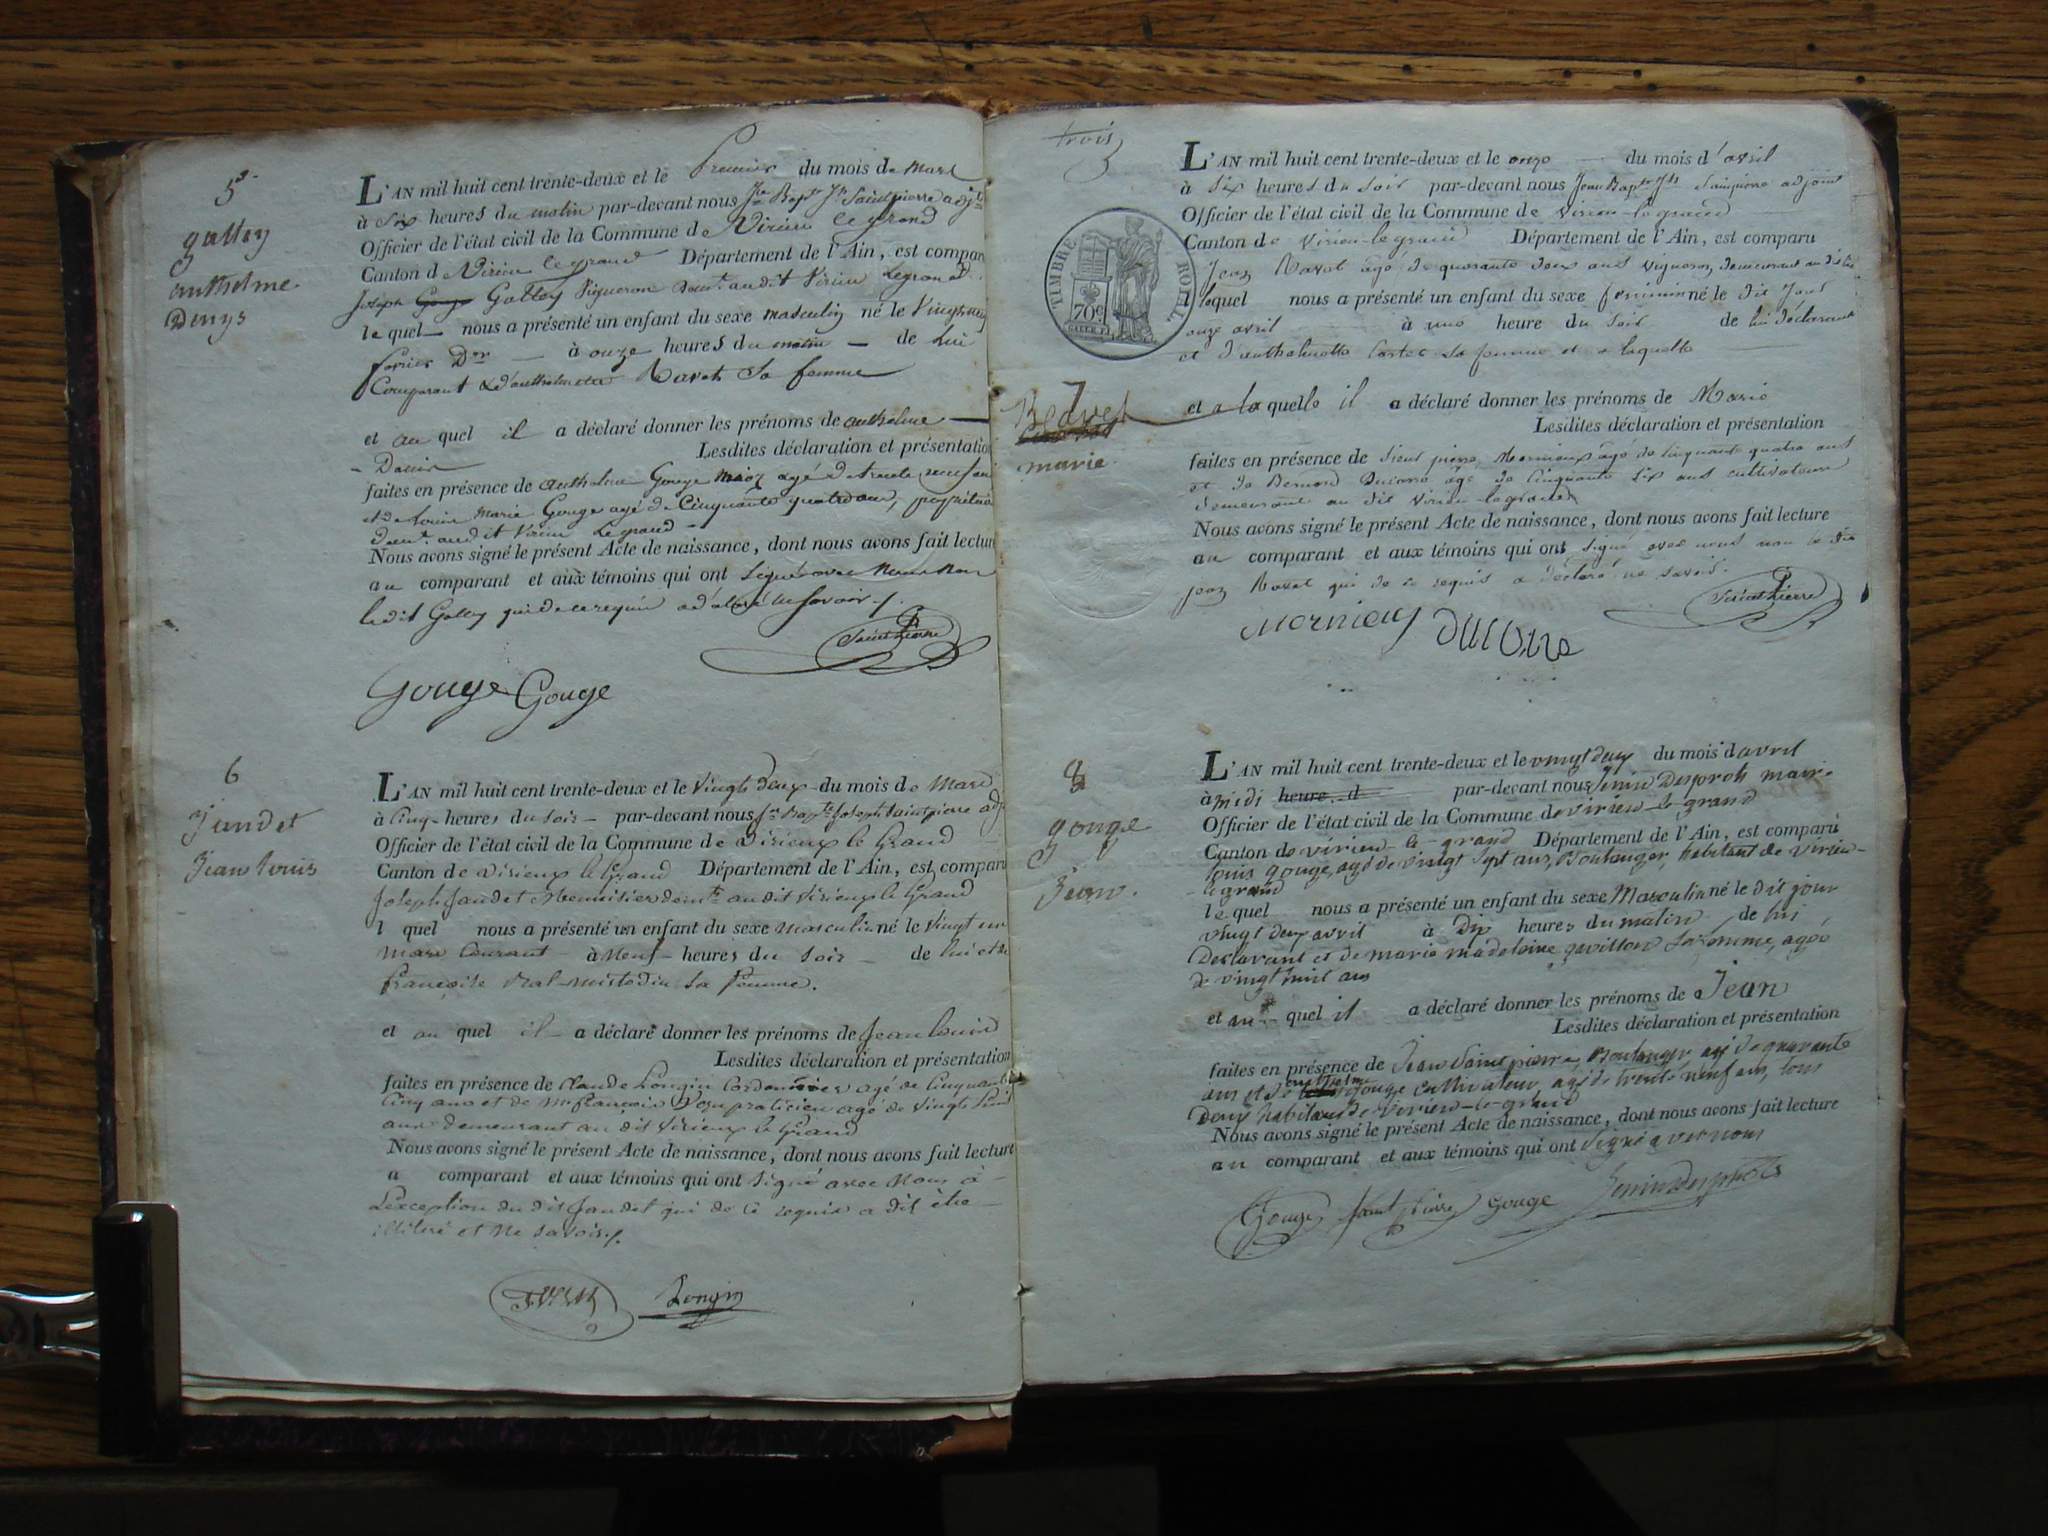 5e
galley
anthelme
Denys
L'AN mil huit cent trente-deux et le Premier du mois de mars
à six heures du matin par-devant nous Jn Bapte Jh Saintpierre adjt
Officier de l'état civil de la Commune de Virieu le grand
Canton de Virieu le grand Département de l'Ain, est comparu
Joseph Gouge Galley Vigneron demt. audit Virieu Legrand
lequel nous a présenté un enfant du sexe masculin né le
fevrier Der à onze heures du matin de Lui
Comparant & d'anthelmette Ravet Sa femme
et au quel il a déclaré donner les prénoms de anthelme
Denis Lesdites déclaration et présentation
faites en présence de anthelme Gouge agé de trente neuf ans
et de Louis Marie Gouge agé de Cinquante quatre ans, propriétaires
demt. audit Virieu Legrand
Nous avons signé le présent Acte de naissance, dont nous avons fait lecture
au comparant et aux témoins qui ont signé avec Nous Non
ledit Galley qui de ce requis a déclaré ne savoir
Saintpierre
Gouge Gouge
6
Jandet
Jean Louis
L'AN mil huit cent trente-deux et le Vingt deux du mois de Mars
à Cinq heures du soir par-devant nous Jn Bapte Joseph Saintpierre adj
Officier de l'état civil de la Commune de Virieux le Grand
Canton de Virieux le Grand Département de l'Ain, est comparu
Joseph Jandet Menuisier demt. au dit Virieux le Grand
l quel nous a présenté un enfant du sexe masculin né le Vingt un
mars Courant à Neuf heures du soir de lui et de
françoise sa femme.
et au quel il a déclaré donner les prénoms de Jean Louis
Lesdites déclaration et présentation
faites en présence de Claude Longin Cordonnier agé de Cinquante
Cinq ans et de Mr françois praticien agé de Vingt huit
ans demeurant au dit Virieux le Grand
Nous avons signé le présent Acte de naissance, dont nous avons fait lecture
a comparant et aux témoins qui ont signé avec Nous à
L'exception du dit Jandet qui de ce requis a dit être
illiteré et Ne savoir.
Longin
trois
3
TIMBRE ROYAL
70c
7
Ravet
marie
L'AN mil huit cent trente-deux et le onze du mois d'avril
à six heures du soir par-devant nous Jean Bapte Jh Saintpierre adjoint
Officier de l'état civil de la Commune de Virieu-le grand
Canton de Virieu-le grand Département de l'Ain, est comparu
Jean Ravet agé de quarante deux ans Vigneron demeurant au dit lieu
lequel nous a présenté un enfant du sexe feminin né le dit jour
onze avril à une heure du soir de lui déclarant
et d'anthelmette Cartet sa femme et a laquelle
et a la quelle il a déclaré donner les prénoms de Marie
Lesdites déclaration et présentation
faites en présence de sieur pierre Mornieux agé de cinquante quatre ans
et de Bernard agé de Cinquante six ans cultivateurs
demeurant au dit Virieu-le grand
Nous avons signé le présent Acte de naissance, dont nous avons fait lecture
au comparant et aux témoins qui ont signé avec nous non le dit
jean Ravet qui de ce requis a déclaré ne savoir.
Saintpierre
8
gouge
Jean.
L'AN mil huit cent trente-deux et le vingt deux du mois d'avril
à midi heure d par-devant nous Jenin Desprots maire
Officier de l'état civil de la Commune de virieu-le-grand
Canton de virieu-le-grand Département de l'Ain, est comparu
Louis gouge, agé de vingt sept ans, Boulanger, habitant de virieu-
le grand
lequel nous a présenté un enfant du sexe Masculin né le dit jour
vingt deux avril à Dix heures du matin de lui
Déclarant et de marie madeleine gavillon sa femme, agée
de vingt huit ans
et au quel il a déclaré donner les prénoms de Jean
Lesdites déclaration et présentation
faites en présence de Jean Saint pierre, Boulanger agé de quarante
ans et de anthelme Gouge cultivateur, agé de trente neuf ans, tous
Deux habitans de virieu-le-grand
Nous avons signé le présent Acte de naissance, dont nous avons fait lecture
au comparant et aux témoins qui ont signé avec nous
Gouge Saint pierre Gouge Jenin Desprots